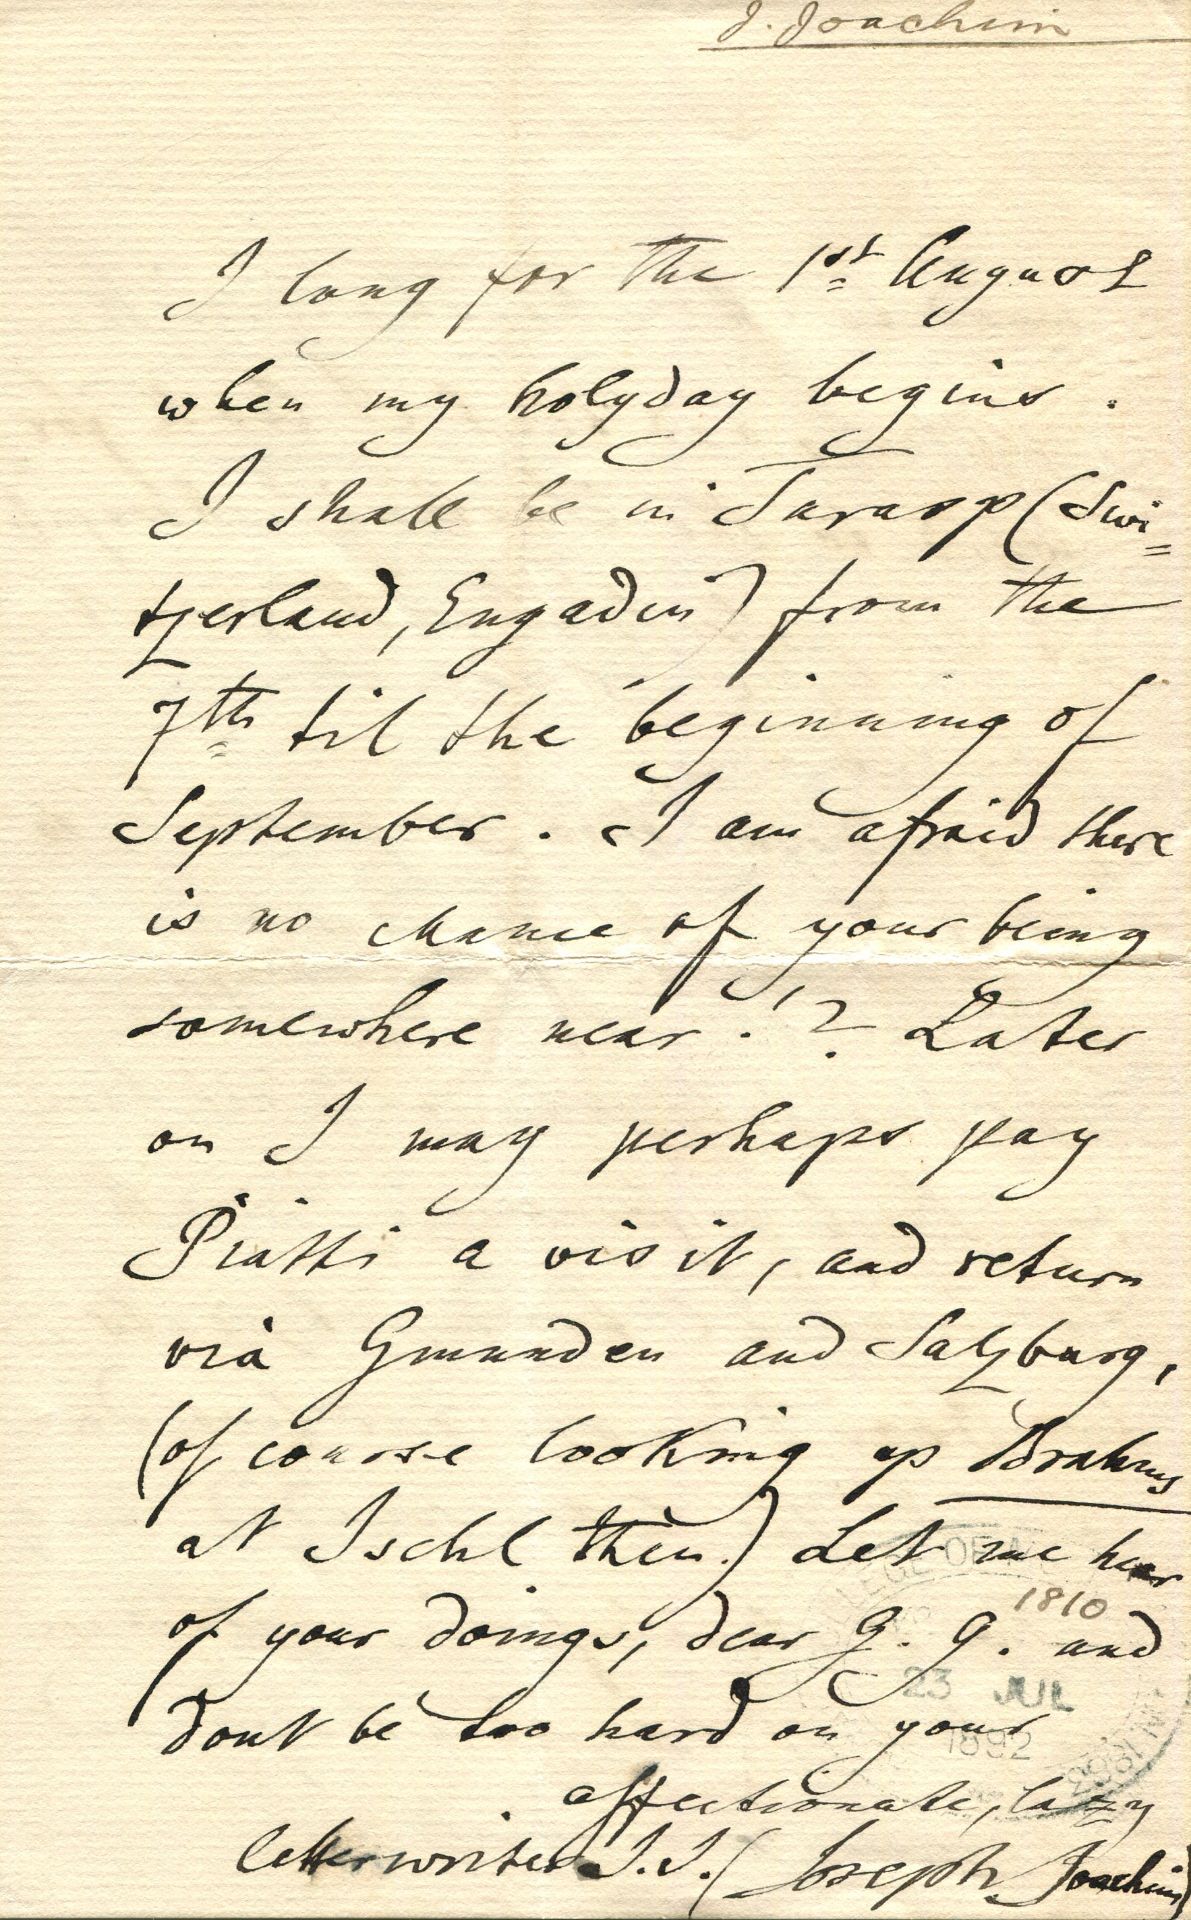 J. Joachim
I long for the 1st August
when my holyday begins.
I shall be in Tarasp (Swi=
tzerland, Engadin) from the
7th til the beginning of
September. I am afraid there
is no chance of your being
somewhere near!? Later
on I may perhaps pay
Piatti a visit, and return
vià Gmunden and Salzburg,
(of course looking up Brahms
at Ischl then.) Let me hear
of your doings, dear G. G. and
1810
dont be too hard on your
affectionate, lazy
letterwriter J. J. (Joseph Joachim)
23 JUL
1892